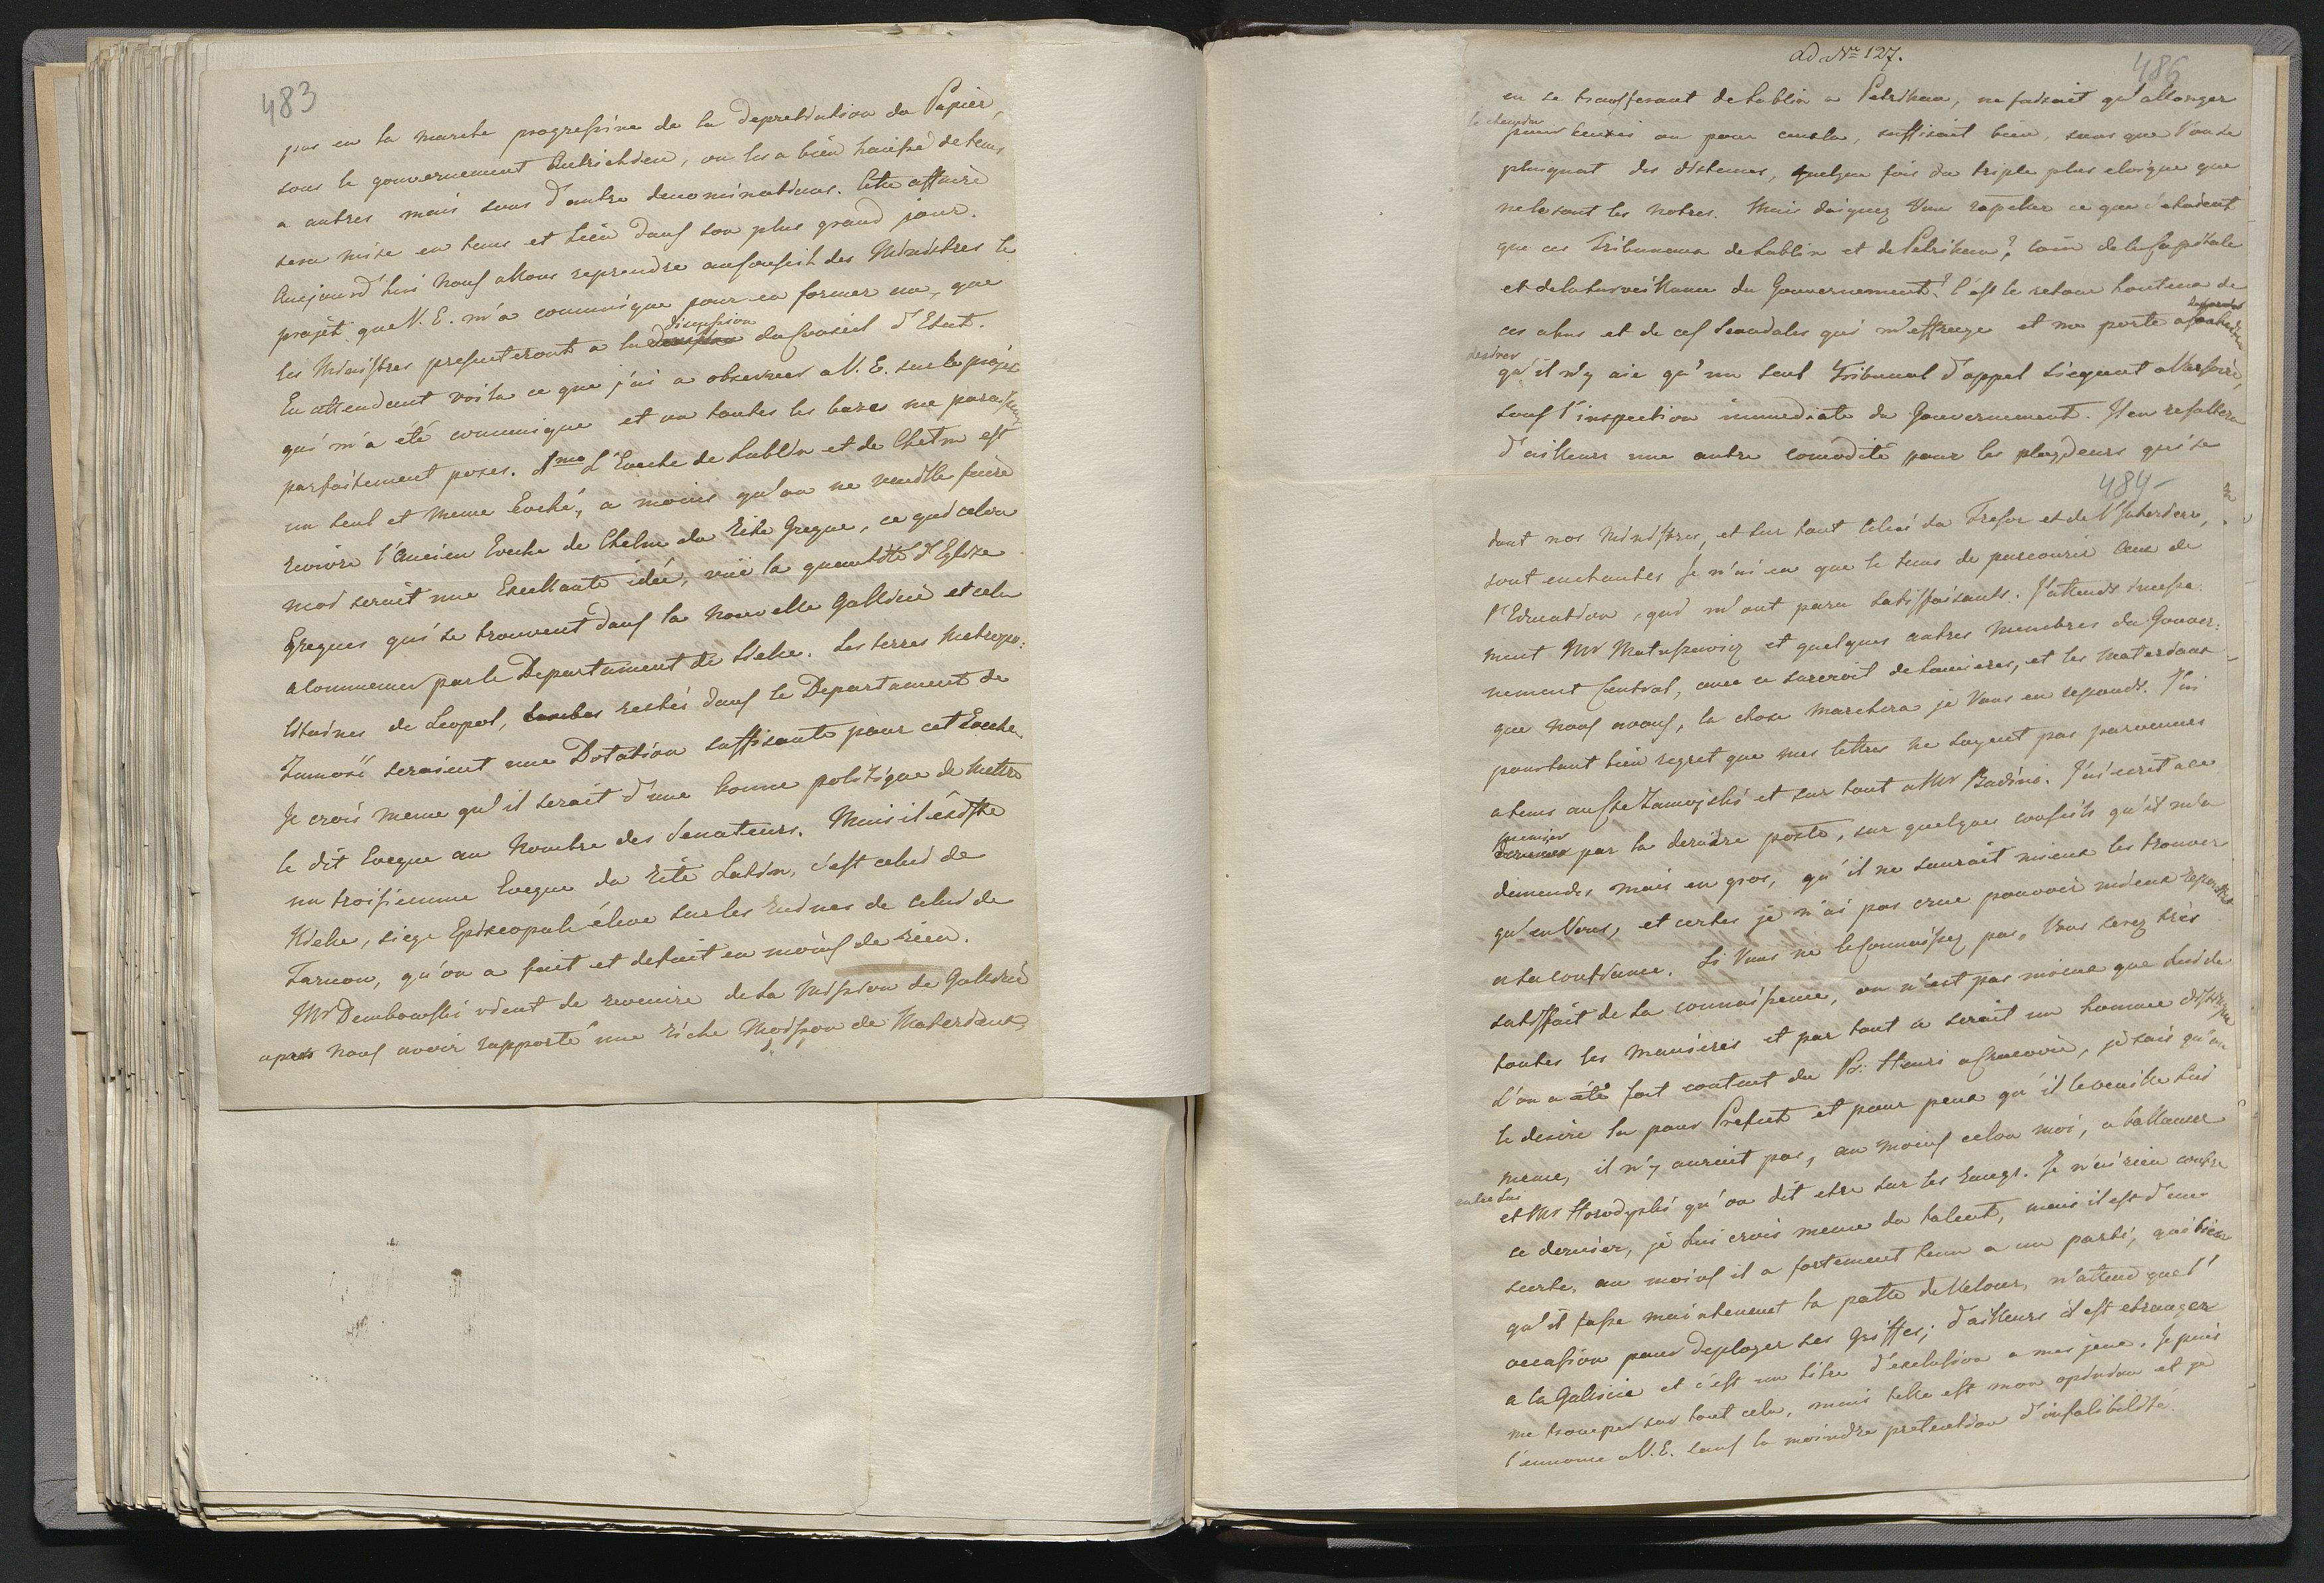 483
pas eu la marche progressive de la depretiation du Papier,
sous le gouvernement Autrichien, on les a bien haussé de tems
a autres mais sous d'autre denominations. Cette affaire
sera mise en tems et lieu dans son plus grand jour.
Aujourd'hui nous allons reprendre au Conseil des Ministres le
projet que V. E. m'a communiqué pour en former un, que
les Ministres presenteront a la discussion du Conseil d'Etat.
En attendant voila ce que j'ai a observer a V. E. sur le projet
qui m'a été communiqué et ou toutes les bazes me paraissent
parfaitement poses. 1mo L'Eveche de Lublin et de Chelm est
un seul et meme Evché, a moins qu'on ne veuille faire
revivre l'Ancien Eveche de Chelm du Rite Greque, ce qui celon
moi serait une Excellante idée, vuë la quantité d'Eglise
Greques qui se trouvent dans la Nouvelle Gallicie et celu
a commencer par le Departament de Sielce. Les terres Metropo:
litaines de Leopol, restés dans le Departament de
Zamość seraient une Dotation suffisante pour cet Eveche.
Je crois meme qu'il serait d'une bonne politique de mettre
le dit Eveque au Nombre des Senateurs. Mais il existe
un troisiemme Eveque du Rite Latin, c'est celui de
Kielce, siege Episcopale élevé sur les Ruines de celui de
Tarnow, qu'on a fait et defait en moins de rien.
Mr Dembowski vient de revenire de la Mission de Gallicie
apres nous avoir rapporté une riche Moisson de Materiaux,
ad No 127.
486
en se transferant de Lublin a Petrikau, ne faisait qu'allonger
le chemin
pour ceux ci ou pour ceux la, suffisait bien, sans que l'on se
plaignat des distences, quelque fois du triple plus eloigne que
ne le sont les notres. Mais daignez Vous rapeller ce que c'etaient
que ces Tribunaux de Lublin et de Petrikau? loin de la Capitale
et de la surveillance du Gouvernement? C'est le retour honteux de
ces abus et de ces Scandales qui m'effraye et me porte a
desirer
qu'il n'y aie qu'un seul Tribunal d'appel siegeant a Varsovie,
sous l'inspection immediate du Gouvernement. Il en resultera
d'ailleurs une autre comodité pour les playdeurs qui se
484
dont nos Ministres, et sur tout celui du Tresor et de l'Interieur,
sont enchantés Je n'ai eu que le tems de parcourir ceux de
l'Education, qui m'ont paru satisfaisants. J'attends incessa:
ment Mr Matuszewicz et quelques autres membres du Gouver:
nement Central, avec ce surcroit de lumieres, et les materiaux
que nous avons, la chose marchera je Vous en reponds. J'ai
pourtant bien regret que mes lettres ne soyent pas parvenues
a tems au Cte Zamoyski et sur tout a Mr Badeni. J'ai ecrit a ce
premier
par la derniere poste, sur quelques conseils qu'il m'a
demendes, mais en gros, qu'il ne saurait mieux les trouver
qu'en Vous, et certes je n'ai pas crue pouvoir mieux repondre
a sa confiance. Si Vous ne le Connaissez pas, Vous serez très
satisfait de sa connaissence, on n'est pas mieux que lui de
toutes les manieres et par tout ce serait un homme distingué
L'on a été fort content du Pr: Henri a Cracovie, je sais qu'on
le desire la pour Prefect et pour peux qu'il le veuille lui
meme, il n'y aurait pas, au moins celon moi, a ballancer
entre lui
et Mr Horodyski qu'on dit etre sur les rangs. Je n'ai rien contre
ce dernier, je lui crois meme du talent, mais il est d'une
secte, au moins il a fortement tenu a un parti, qui bien
qu'il fasse maintenant la patte de Velour, n'attend que l'
occasion pour deployer ses Griffes; d'ailleurs il est etranger
a la Galicie et c'est un titre d'exclusion a mes yeux. Je puis
me tromper sur tout cela, mais telle est mon opinion et je
l'ennonce a V. E. sans la moindre pretention d'infalibilité.